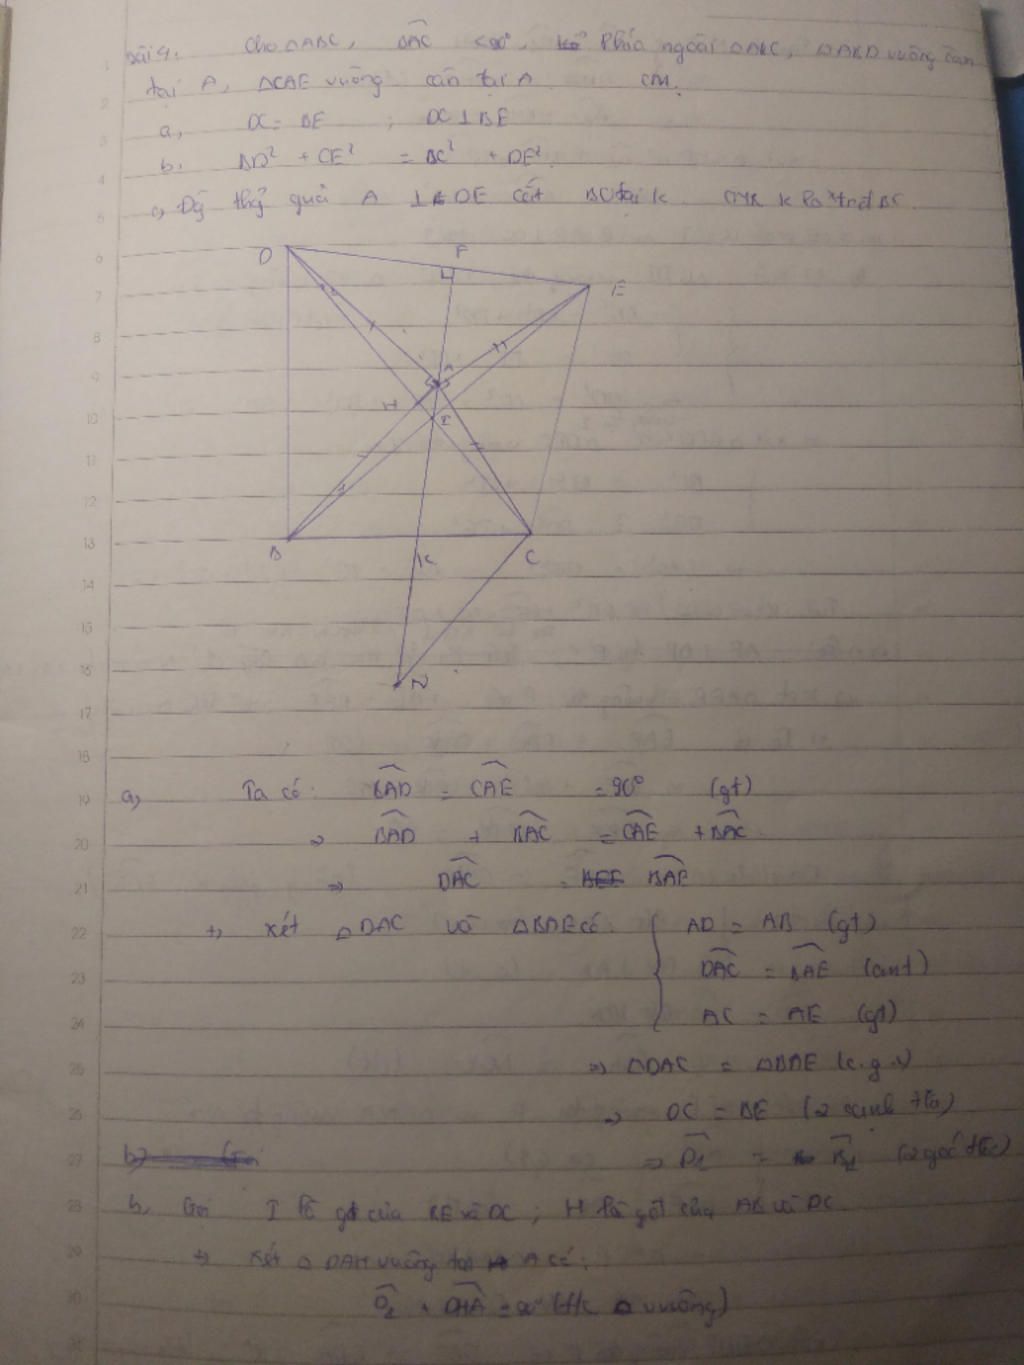 Bài 4. Cho △ABC, BAC < 90°, kẻ phía ngoài △ABC, △ABD vuông cân
tại A, △CAE vuông cân tại A CM.
a, DC = BE ; DC ⊥ BE
b. BD² + CE² = BC² + DE².
c, Đg thg qua A ⊥ DE cắt BC tại K. CMR K là trđ BC.
D F E
A
H I
B K C
N
a) Ta có: BAD = CAE = 90° (gt)
=> BAD + BAC = CAE + BAC
=> DAC = BAE
+, Xét △DAC và △BAE có { AD = AB (gt)
DAC = BAE (cmt)
AC = AE (gt)
=> △DAC = △BAE (c.g.c)
=> DC = BE (2 cạnh )
=> D₁ = B₁ (2 góc )
b, Gọi I là gđ của BE và DC ; H là gđ của AB và DC
+, Xét △DAH vuông tại A có:
D₁ + DHA = 90° (t/c △ vuông)